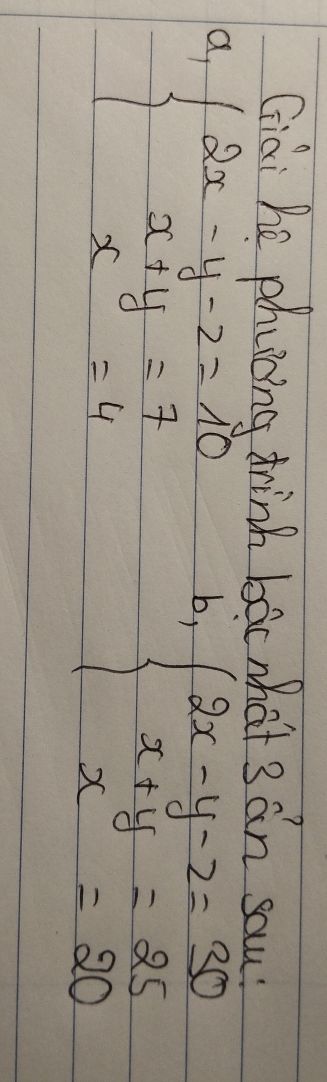 Giải hệ phương trình bậc nhất 3 ẩn sau:
a, { 2x - y - z = 10
x + y = 7
x = 4
b, { 2x - y - z = 30
x + y = 25
x = 20